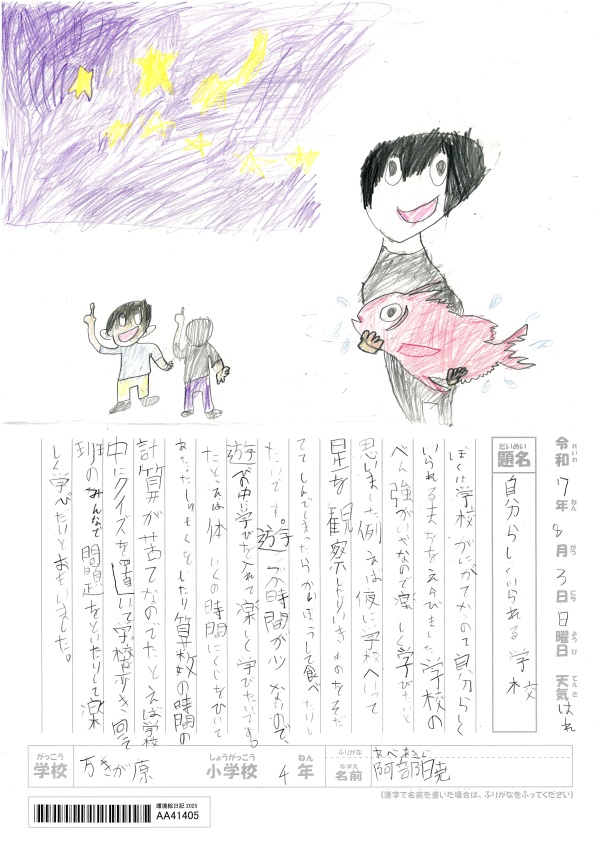 令和7年8月3日日曜日 天気 はれ
れいわ ねん がつ にち ようび てんき
だいめい
題名 自分らしくいられる学校
ぼくは学校がにがてなので自分らしく
いられる をえらびました学校の
べん強がいやなので楽しく学びたいと
思いました例えば夜に学校へいって
星を観察したりいきものをそだ
ててしんでしまったらかいぼうして食べたりし
たいです。遊ぶ時間が少ないので、
遊びの中に学びを入れて楽しく学びたいです。
たとえば体いくの時間にくじをひいて
あたったしゅもくをしたり算数の時間の
計算が苦てなのでたとえば学校
中にクイズを置いて学校を歩き回って
班のみんなで問題をといたりして楽
しく学びたいとおもいました。
がっこう しょうがっこう ねん ふりがな あべ
学校 万きが原 小学校 4年 なまえ 名前 阿部暁
(漢字で名前を書いた場合は、ふりがなをふってください)
環境絵日記 2025
AA41405